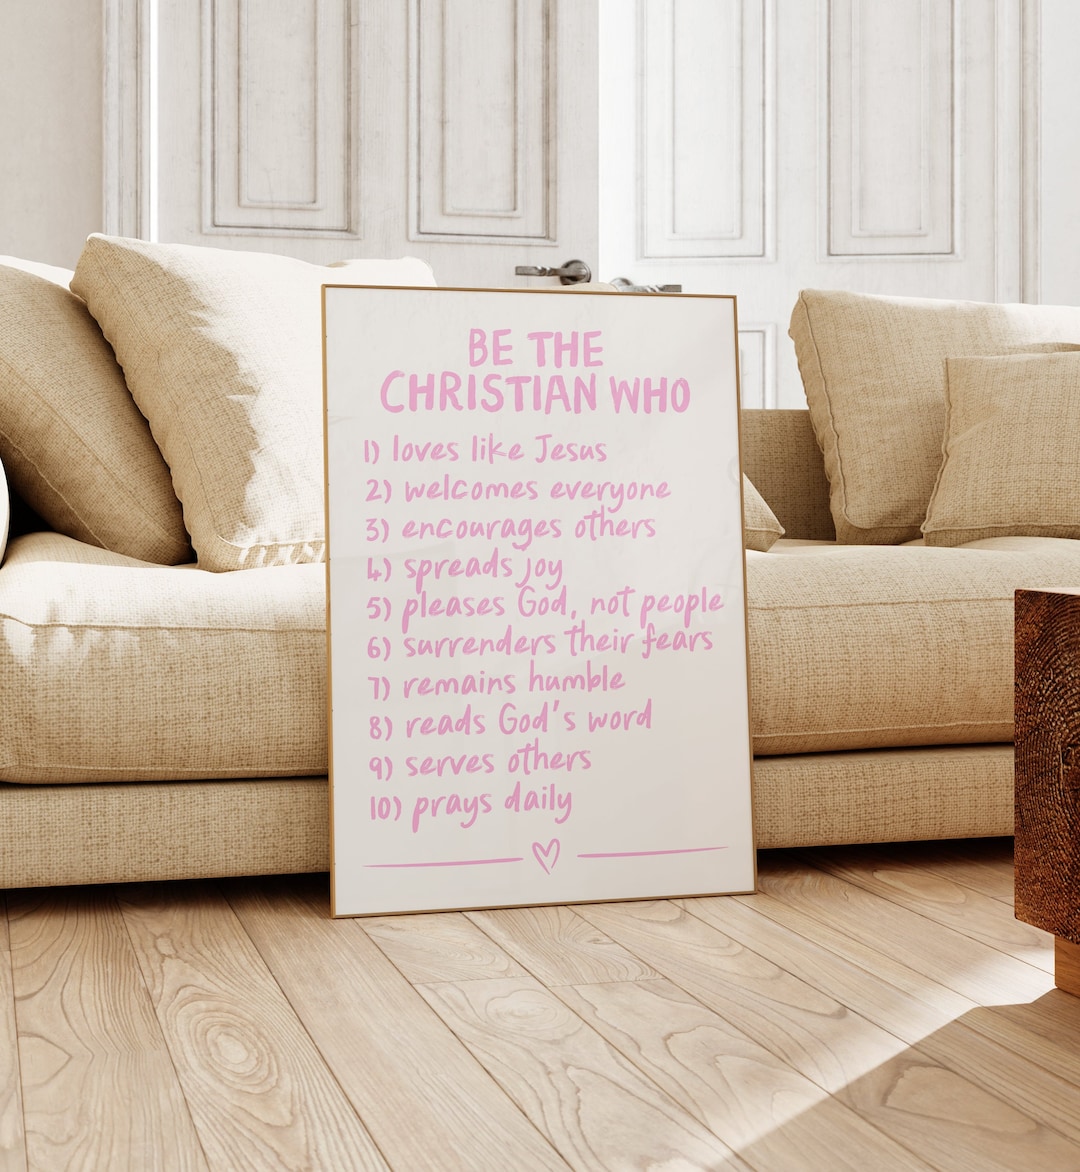 BE THE
CHRISTIAN WHO
1) loves like Jesus
2) welcomes everyone
3) encourages others
4) spreads joy
5) pleases God, not people
6) surrenders their fears
7) remains humble
8) reads God's word
9) serves others
10) prays daily